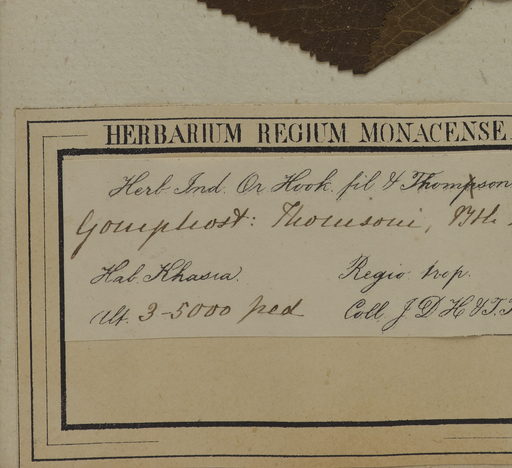 HERBARIUM REGIUM MONACENSE.
Herb. Ind. Or. Hook. fil & Thomson
Gomphost: Thomsoni, Bth
Hab. Khasia. Regio trop.
Alt. 3-5000 ped Coll. J. D. H. & T. T